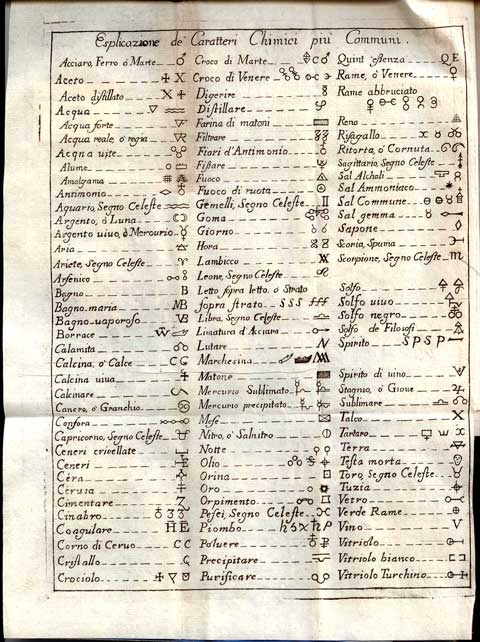 Esplicazione de' Caratteri Chimici più Communi.
Acciaro, Ferro ò Marte
Aceto
Aceto distillato
Acqua
Acqua forte
Acqua reale, ò regia
Acqua uite
Alume
Amalgama
Antimonio
Aquario, Segno Celeste
Argento, ò Luna
Argento uiuo, ò Mercurio
Aria
Ariete, Segno Celeste
Arsenico
Bagno B
Bagno-maria MB
Bagno-uaporoso VB
Borrace
Calamita
Calcina, ò Calce
Calcina uiua
Calcinare
Canero, ò Granchio
Canfora
Capricorno, Segno Celeste
Ceneri criuellate
Ceneri
Cera
Cerusa
Cimentare
Cinabro
Coagulare
Corno di Ceruo C C
Cristallo
Crociolo
Croco di Marte
Croco di Venere
Digerire
Distillare
Farina di matoni
Filtrare
Fiori d'Antimonio
Fissare
Fuoco
Fuoco di ruota
Gemelli, Segno Celeste
Goma
Giorno
Hora
Lambicco
Leone, Segno Celeste
Letto sopra letto, ò Strato
sopra strato SSS
Libra, Segno Celeste
Limatura d'Acciaro
Lutare
Marchesina
Matone
Mercurio Sublimato
Mercurio precipitato
Mese
Nitro, ò Salnitro
Notte
Olio
Orina
Oro
Orpimento
Pesci, Segno Celeste
Piombo
Poluere
Precipitare
Purificare
Quint'essenza Q E
Rame, ò Venere
Rame abbruciato
Rena
Risagallo
Ritorta, ò Cornuta
Sagittario, Segno Celeste
Sal Alchali
Sal Ammoniaco
Sal Comune
Sal gemma
Sapone
Scoria, Spuma
Scorpione, Segno Celeste
Solfo
Solfo uiuo
Solfo negro
Solfo de Filosofi
Spirito
Spirito di uino
Stagnio, ò Gioue
Sublimare
Talco X
Tartaro
Terra
Testa morta
Toro, Segno Celeste
Tuzia
Vetro
Verde Rame
Vino V
Vitriolo
Vitriolo bianco
Vitriolo Turchino